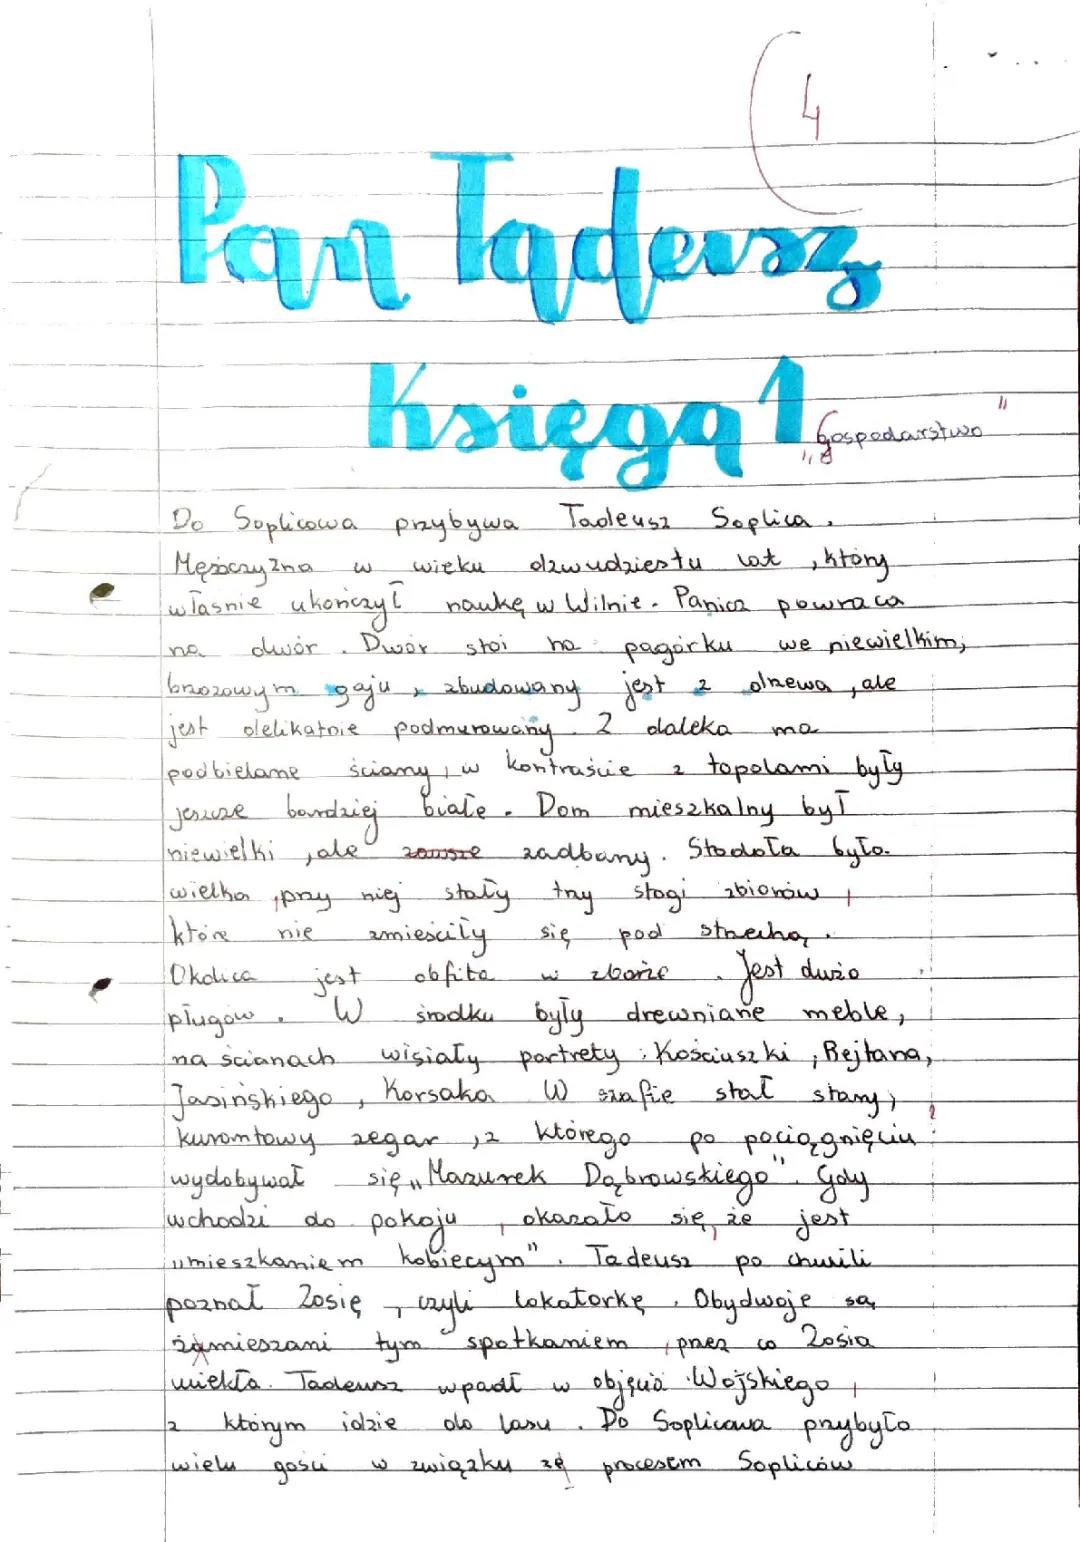 4
Pan Tadeusz
Księga 1 „Gospodarstwo"
Do Soplicowa przybywa Tadeusz Soplica.
Mężczyzna w wieku dzwudziestu lat, który
właśnie ukończył naukę w Wilnie. Panicz powraca
na dwór. Dwór stoi na pagórku we niewielkim,
brzozowym gaju, zbudowany jest z drzewa, ale
jest delikatnie podmurowany. Z daleka ma
podbielane ściany, w kontraście z topolami były
jeszcze bardziej białe. Dom mieszkalny był
niewielki, ale zawsze zadbany. Stodoła była
wielka, przy niej stały trzy stogi zbiorów,
które nie zmieściły się pod strzechą.
Okolica jest obfita w zboże. Jest dużo
pługów. W środku były drewniane meble,
na ścianach wisiały portrety: Kościuszki, Rejtana,
Jasińskiego, Korsaka W szafie stał stary,
kurantowy zegar, z którego po pociągnięciu
wydobywał się „Mazurek Dąbrowskiego". Gdy
wchodzi do pokoju, okazało się, że jest
„mieszkaniem kobiecym". Tadeusz po chwili
poznał Zosię, czyli lokatorkę. Obydwoje są
zamieszani tym spotkaniem, przez co Zosia
uciekła. Tadeusz wpadł w objęcia Wojskiego,
z którym idzie do lasu. Do Soplicowa przybyło
wielu gości w związku ze procesem Sopliców